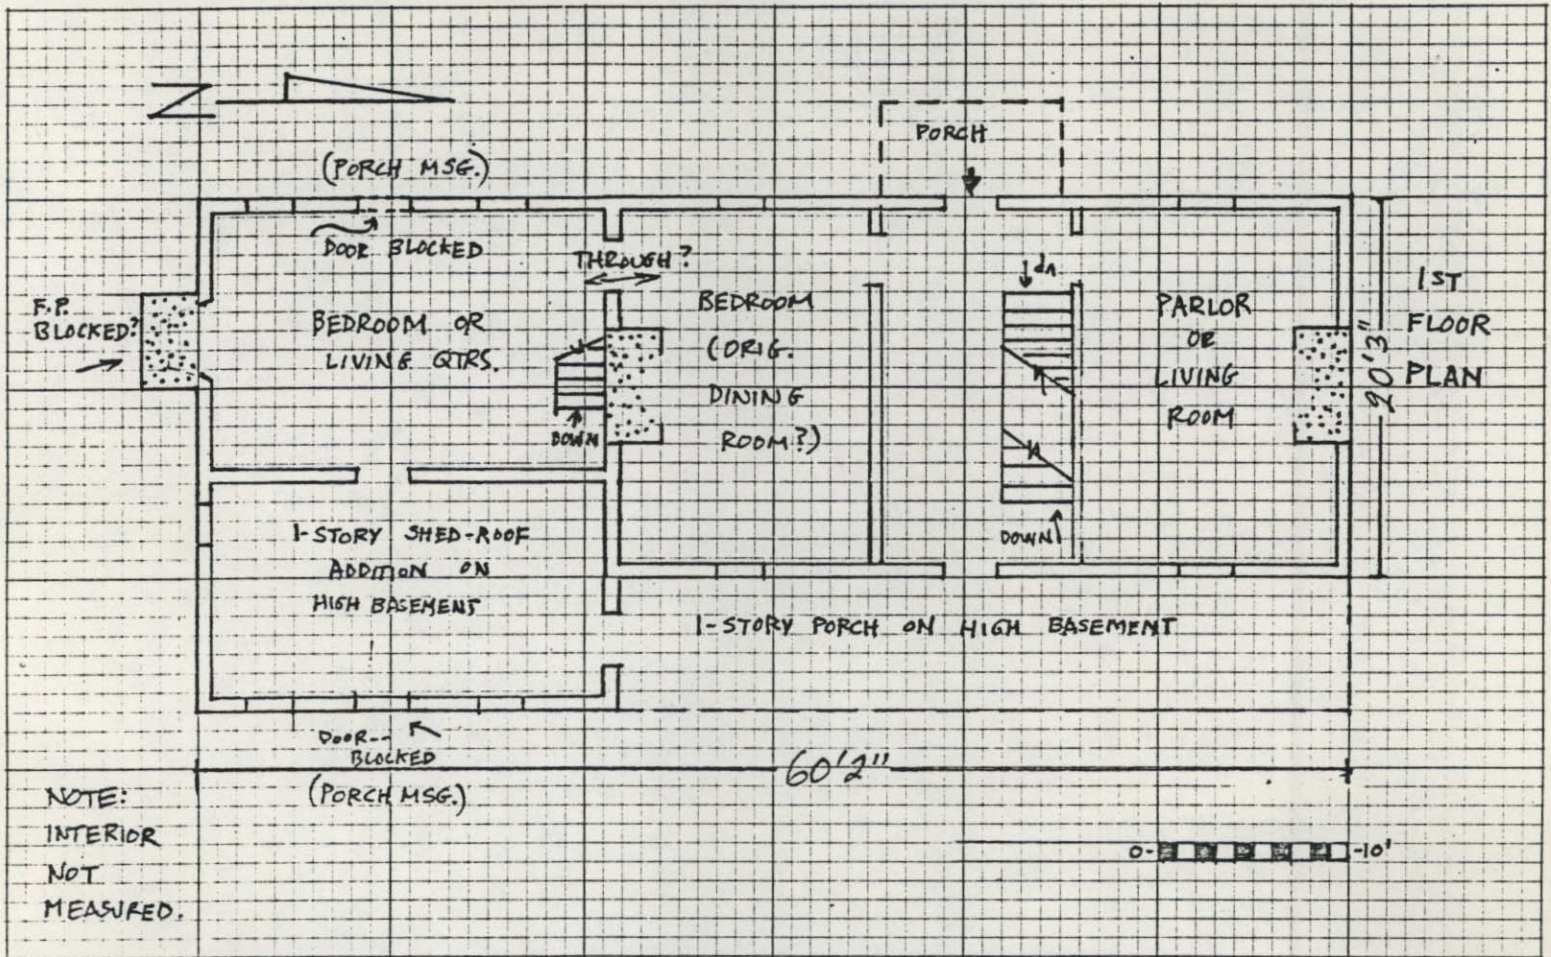 N
(PORCH MSG.)
PORCH
DOOR BLOCKED
THROUGH?
dn
F.P.
BLOCKED?
BEDROOM OR
LIVING QTRS.
DOWN
BEDROOM
(ORIG.
DINING
ROOM?)
DOWN
PARLOR
OR
LIVING
ROOM
20'3"
1ST
FLOOR
PLAN
1-STORY SHED-ROOF
ADDITION ON
HIGH BASEMENT
1-STORY PORCH ON HIGH BASEMENT
DOOR--
BLOCKED
(PORCH MSG.)
60'2"
NOTE:
INTERIOR
NOT
MEASURED.
0- -10'